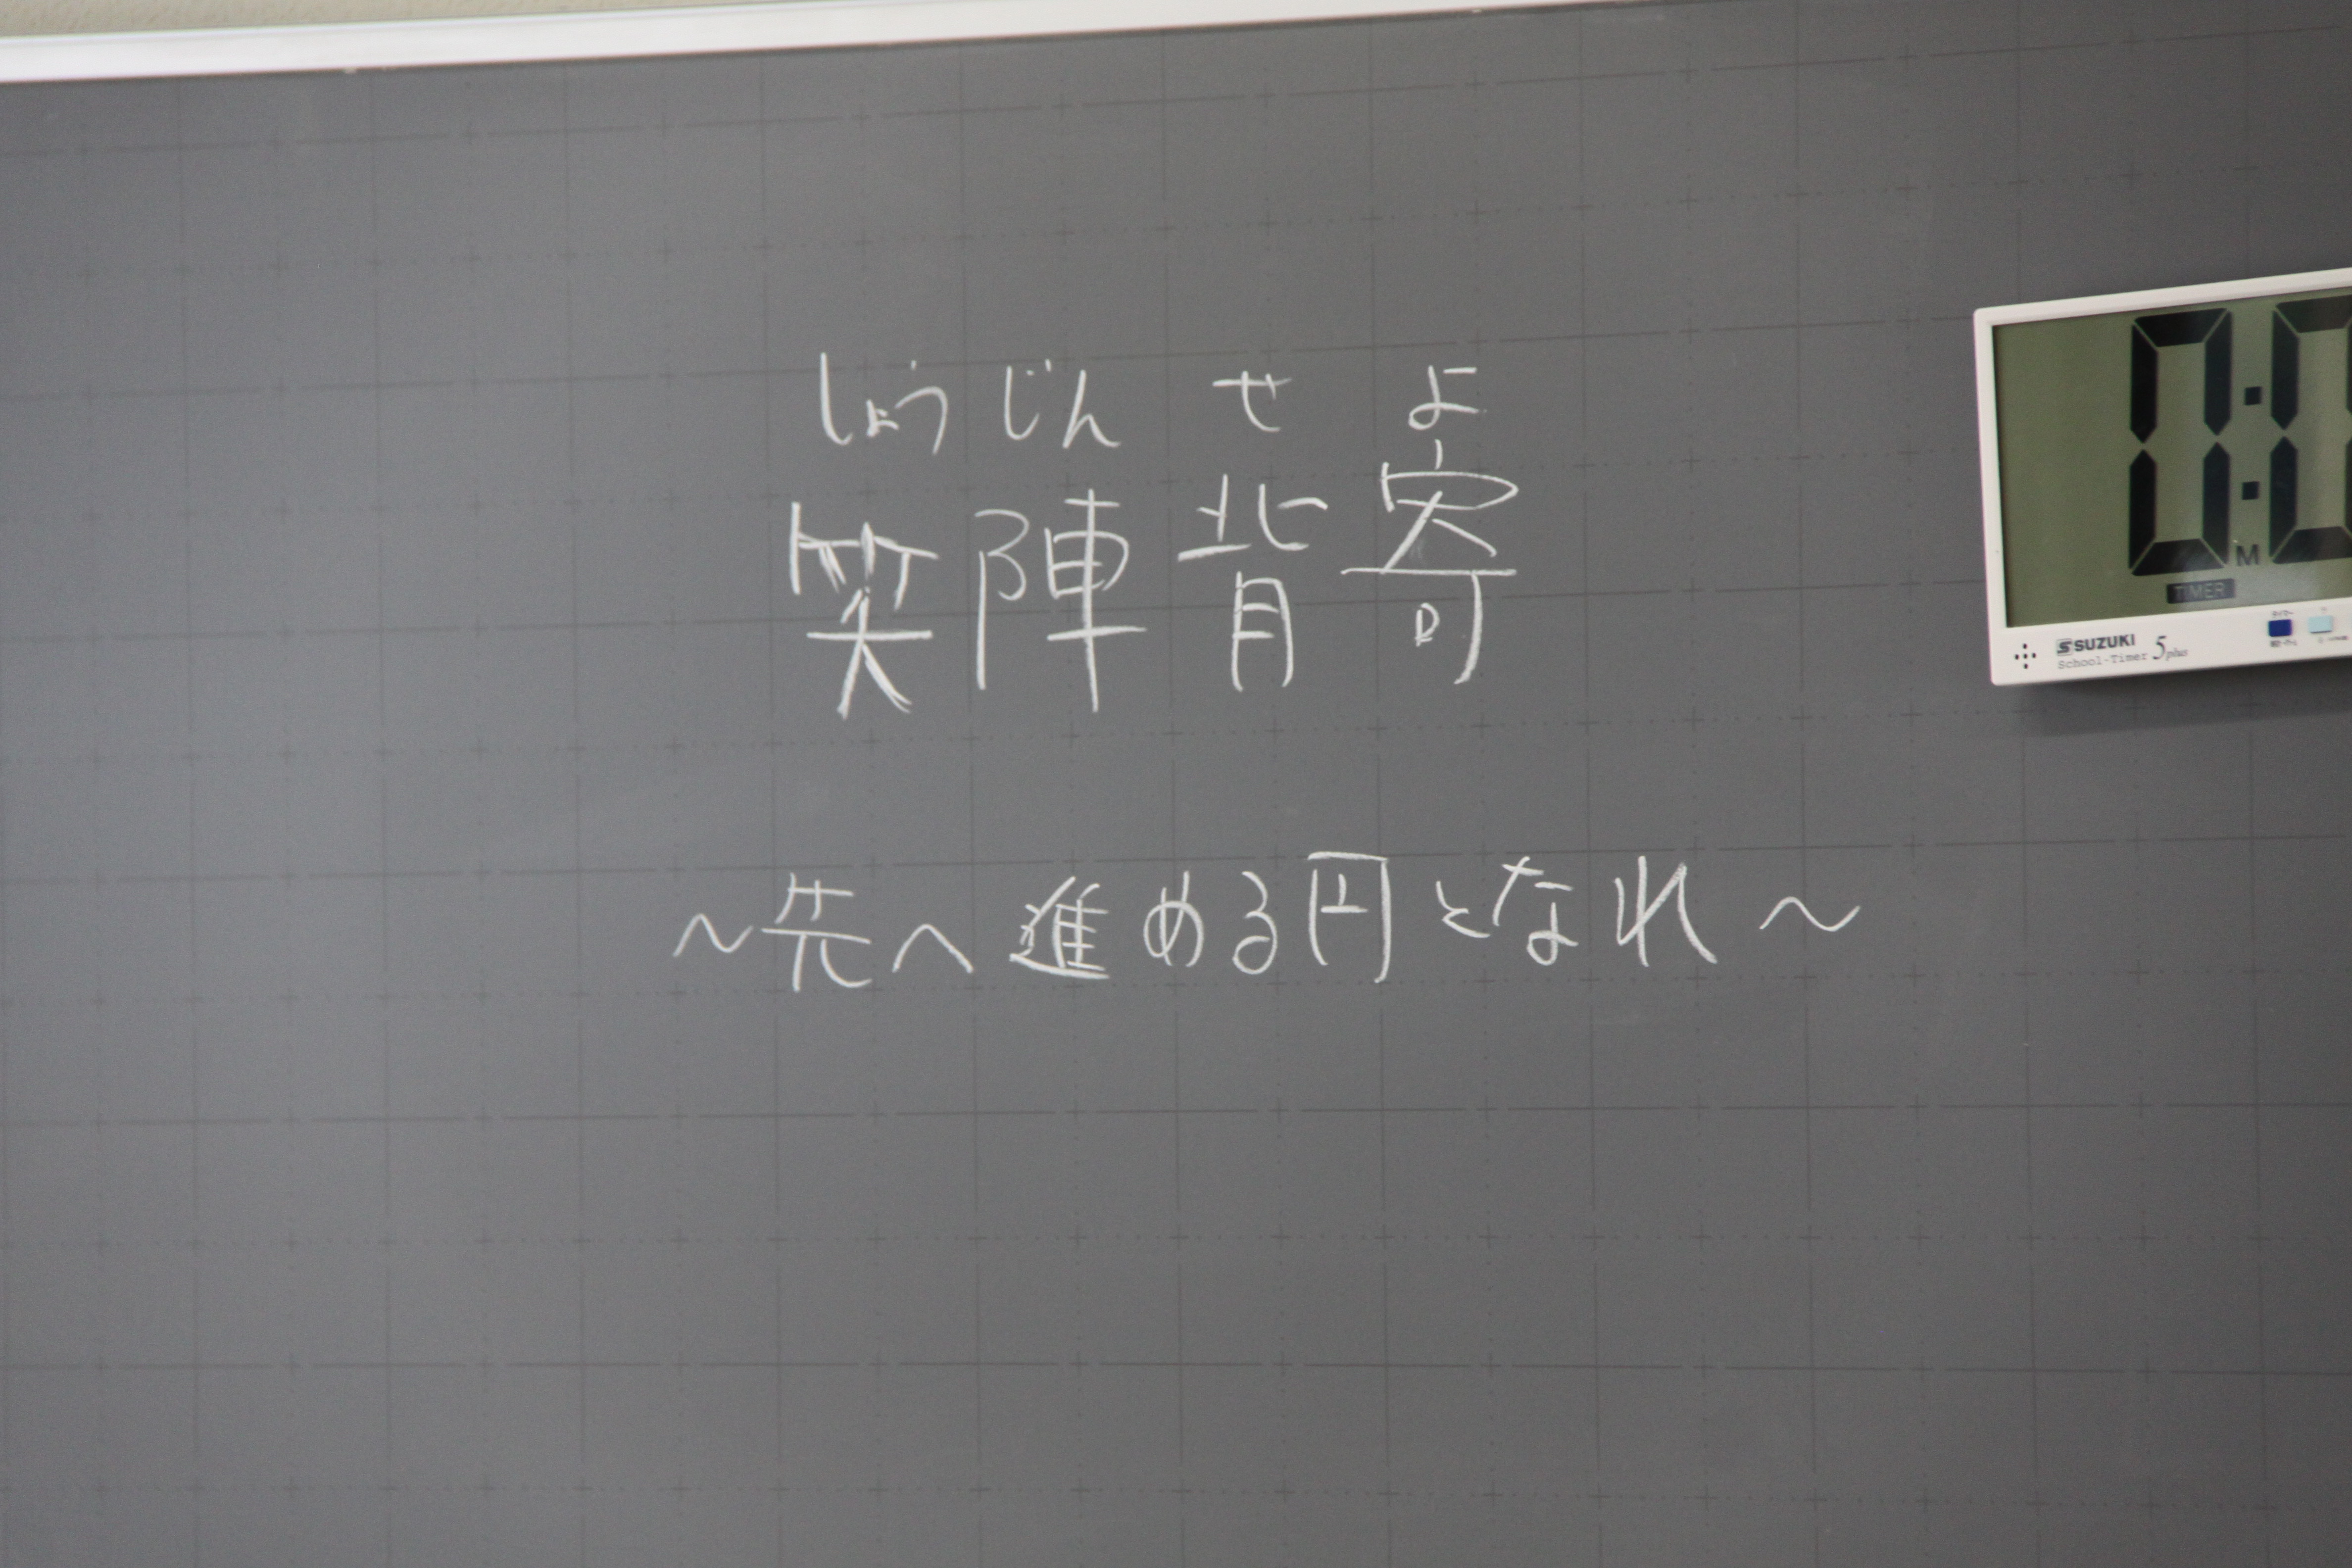 しょうじんせよ
笑陣背寄
~先へ進める円となれ~
0:0
M
TIMER
SUZUKI
School-Timer 5plus